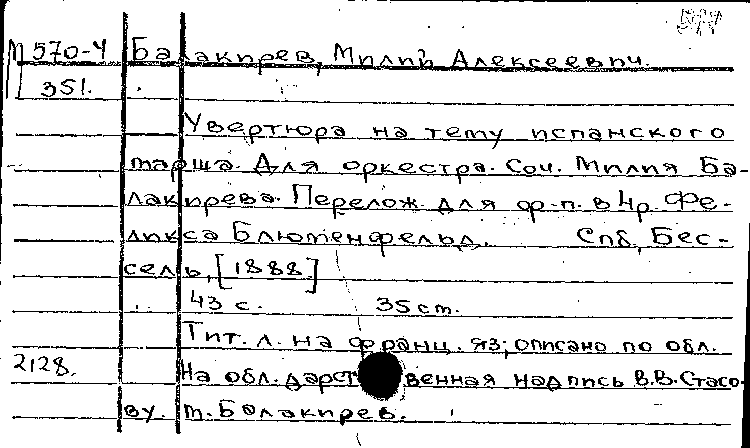 М 570-4 Балакирев, Милий Алексеевич.
351.
Увертюра на тему испанского
марша. Для оркестра. Соч. Милия Ба-
лакирева. Перелож. для ф.-п. в 4 р. Фе-
ликса Блюменфельд. Спб, Бес-
сель, [1888.]
43 с. 35 cm.
Тит. л. на франц. яз; описано по обл.
2128. На обл. дарственная надпись В.В. Стасо-
ву. М. Балакирев.